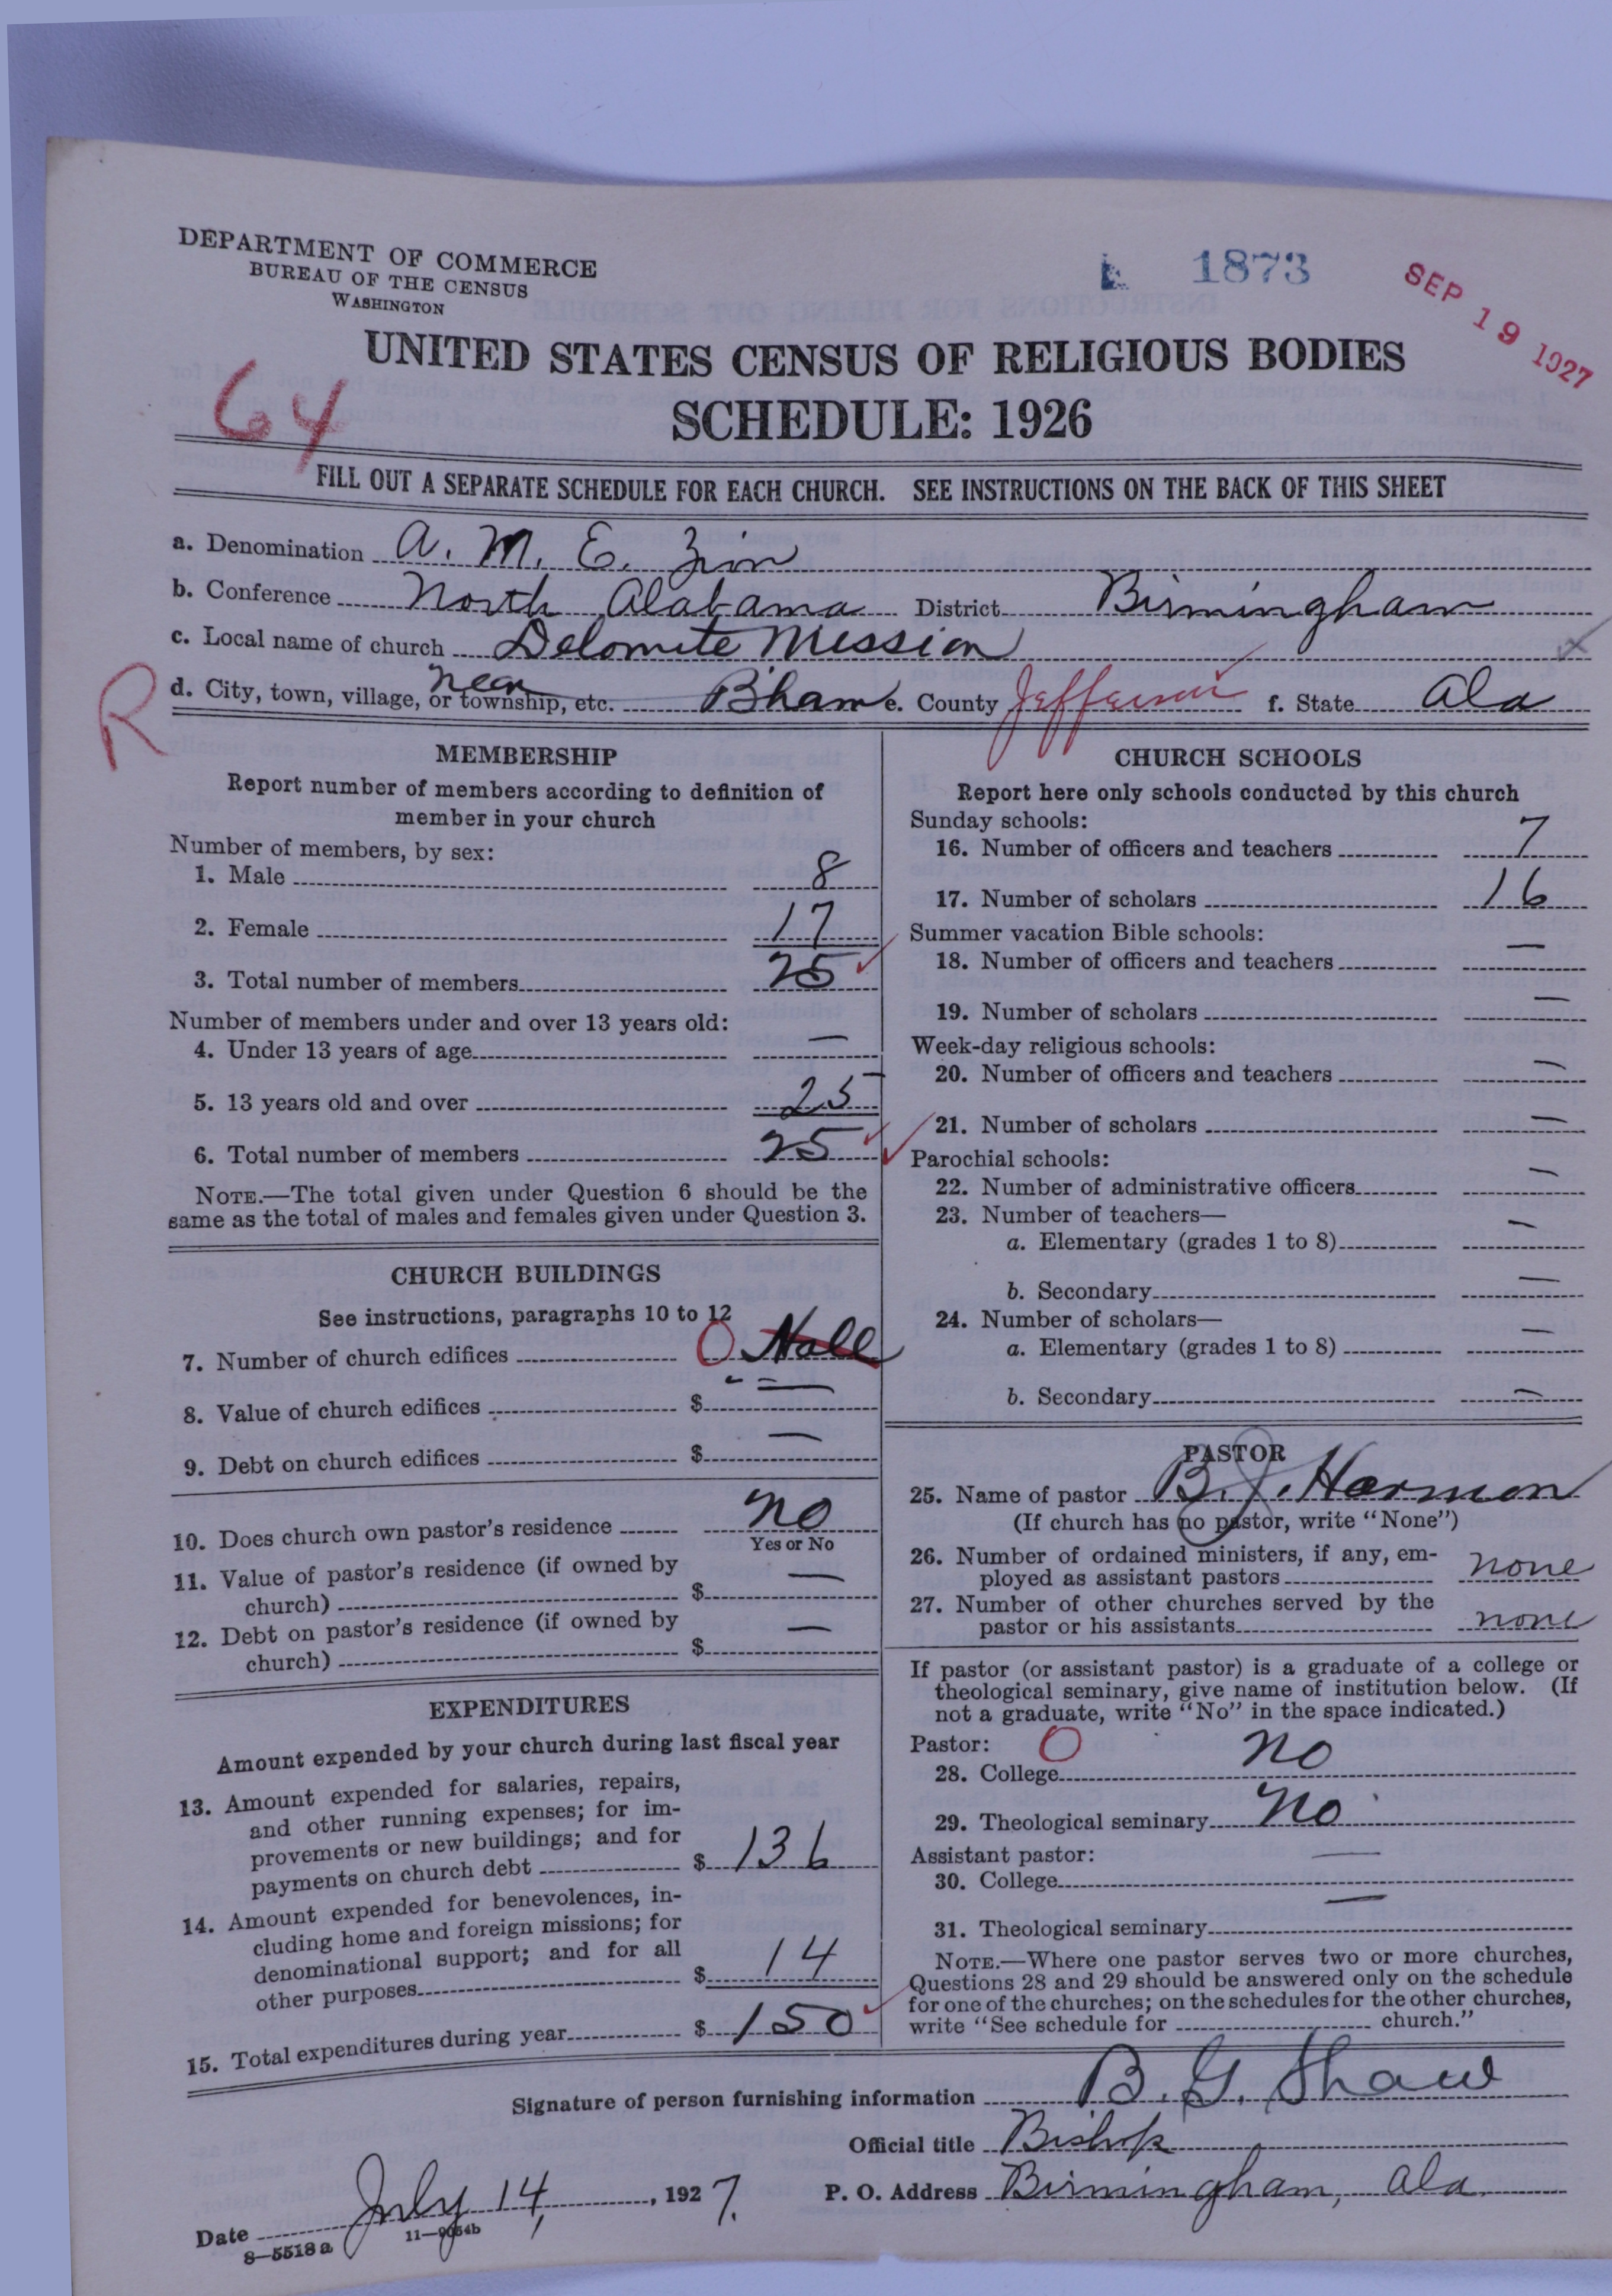 DEPARTMENT OF COMMERCE
BUREAU OF THE CENSUS
WASHINGTON
1873
SEP 19 1927
64
UNITED STATES CENSUS OF RELIGIOUS BODIES
SCHEDULE: 1926
FILL OUT A SEPARATE SCHEDULE FOR EACH CHURCH. SEE INSTRUCTIONS ON THE BACK OF THIS SHEET
a. Denomination A. M. E. Zion
b. Conference North Alabama District Birmingham
c. Local name of church Delomite Mission
R
d. City, town, village, or township, etc. near Bham e. County Jefferson f. State Ala
MEMBERSHIP
Report number of members according to definition of
member in your church
Number of members, by sex:
1. Male 8
2. Female 17
3. Total number of members 25
Number of members under and over 13 years old:
4. Under 13 years of age —
5. 13 years old and over 25
6. Total number of members 25
NOTE.—The total given under Question 6 should be the
same as the total of males and females given under Question 3.
CHURCH BUILDINGS
See instructions, paragraphs 10 to 12
7. Number of church edifices 0 Hall
8. Value of church edifices $ —
9. Debt on church edifices $ —
10. Does church own pastor's residence No
Yes or No
11. Value of pastor's residence (if owned by
church) $ —
12. Debt on pastor's residence (if owned by
church) $ —
EXPENDITURES
Amount expended by your church during last fiscal year
13. Amount expended for salaries, repairs,
and other running expenses; for im-
provements or new buildings; and for
payments on church debt $ 136
14. Amount expended for benevolences, in-
cluding home and foreign missions; for
denominational support; and for all
other purposes $ 14
15. Total expenditures during year $ 150
CHURCH SCHOOLS
Report here only schools conducted by this church
Sunday schools:
16. Number of officers and teachers 7
17. Number of scholars 16
Summer vacation Bible schools:
18. Number of officers and teachers —
19. Number of scholars —
Week-day religious schools:
20. Number of officers and teachers —
21. Number of scholars —
Parochial schools:
22. Number of administrative officers —
23. Number of teachers—
a. Elementary (grades 1 to 8) —
b. Secondary —
24. Number of scholars—
a. Elementary (grades 1 to 8) —
b. Secondary —
PASTOR
25. Name of pastor B. J. Harmon
(If church has no pastor, write "None")
26. Number of ordained ministers, if any, em-
ployed as assistant pastors none
27. Number of other churches served by the
pastor or his assistants none
If pastor (or assistant pastor) is a graduate of a college or
theological seminary, give name of institution below. (If
not a graduate, write "No" in the space indicated.)
Pastor: 0
28. College No
29. Theological seminary No
Assistant pastor:
30. College —
31. Theological seminary —
NOTE.—Where one pastor serves two or more churches,
Questions 28 and 29 should be answered only on the schedule
for one of the churches; on the schedules for the other churches,
write "See schedule for church."
Signature of person furnishing information B. G. Shaw
Official title Bishop
Date July 14, 1927. P. O. Address Birmingham, Ala.
8—5518a 11—9054b